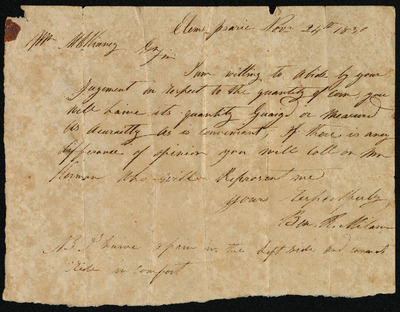 Elm prairie Nov. 24th 1830
Wm McElhaney Esq
I am willing to abide by your
Jugement in respect to the quantity of corn you
will have its quantity Guaged or Measured
as accuraitly as is conveniant, If there is any
differance of opinion you will call on Mr
who will Represent me
yours respectfuly
Ben R. Milam
N.B. I have a pain in the left side and cannot
ride in comfort